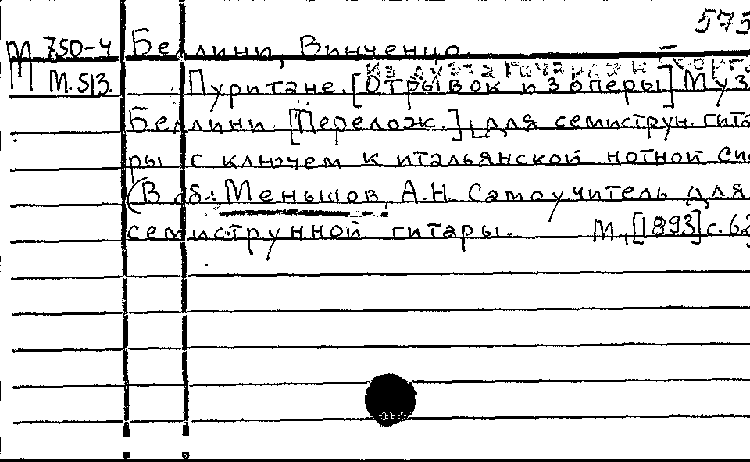 573
М 750-4 Беллини, Винченцо.
М.513 Пуритане. [Отрывок из оперы] Муз
Беллини. [Перелож.] для семиструн. гита
ры с ключем к итальянской нотной сис
(В об.: Меньшов, А.Н. Самоучитель для
семиструнной гитары. М., [1893] с. 62